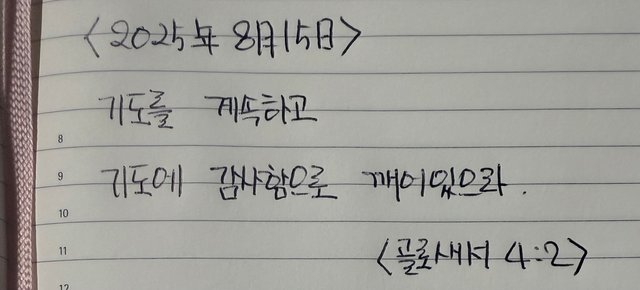 <2025年 8月15日>
기도를 계속하고
8
9 기도에 감사함으로 깨어있으라.
10
11 <골로새서 4:2>
12